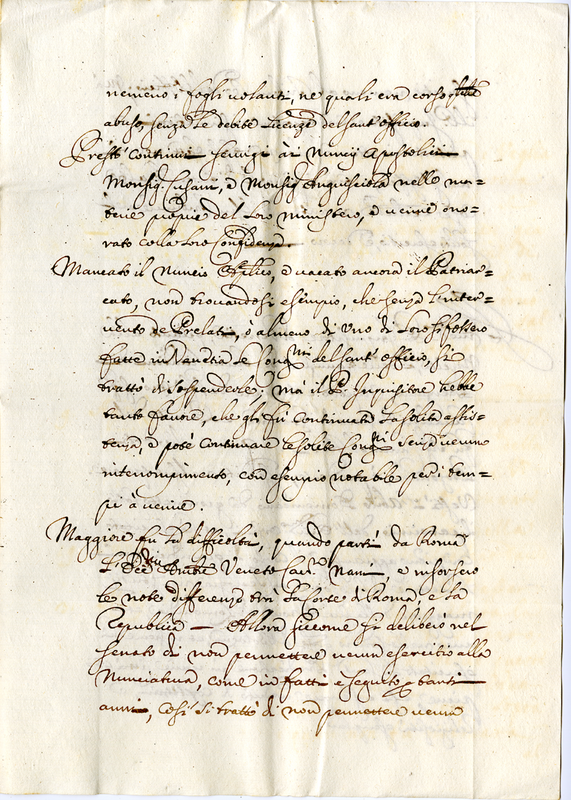 nemeno i fogli volanti, ne quali era corso
abuso, senza le debite licenze del sant'officio.
Prestò continui servigi ài Nuncij Apostolici
Monsig. Cusani, e Monsig. Anguisciola nelle ma=
terie proprie del loro ministero, e venne ono=
rato colla loro Confidenza.
Mancato il Nuncio Aplico, e vacato ancora il Patriar=
cato, non trovandosi esempio, che senza l'inter=
vento de Prelati, ò almeno di uno di loro si fossero
fatte in Venetia le Congni del sant'officio, si
trattò di sospenderle; mà il P. Inquisitore hebbe
tanto favore, che gli fù continuata la solita assis=
tenza, e potè continuare le solite Congni senza veruno
interrompimento, con esempio notabile per i tem=
pi à venire.
Maggiore fu la difficoltà, quando partì da Roma
Veneto Nani e insorsero
le note differenze trà la Corte di Roma, e la
Republica — Allora siccome si deliberò nel
senato di non permettere verun esercitio alla
Nunciatura, come in fatti è seguito tanti
anni, così si trattò di non permettere verun